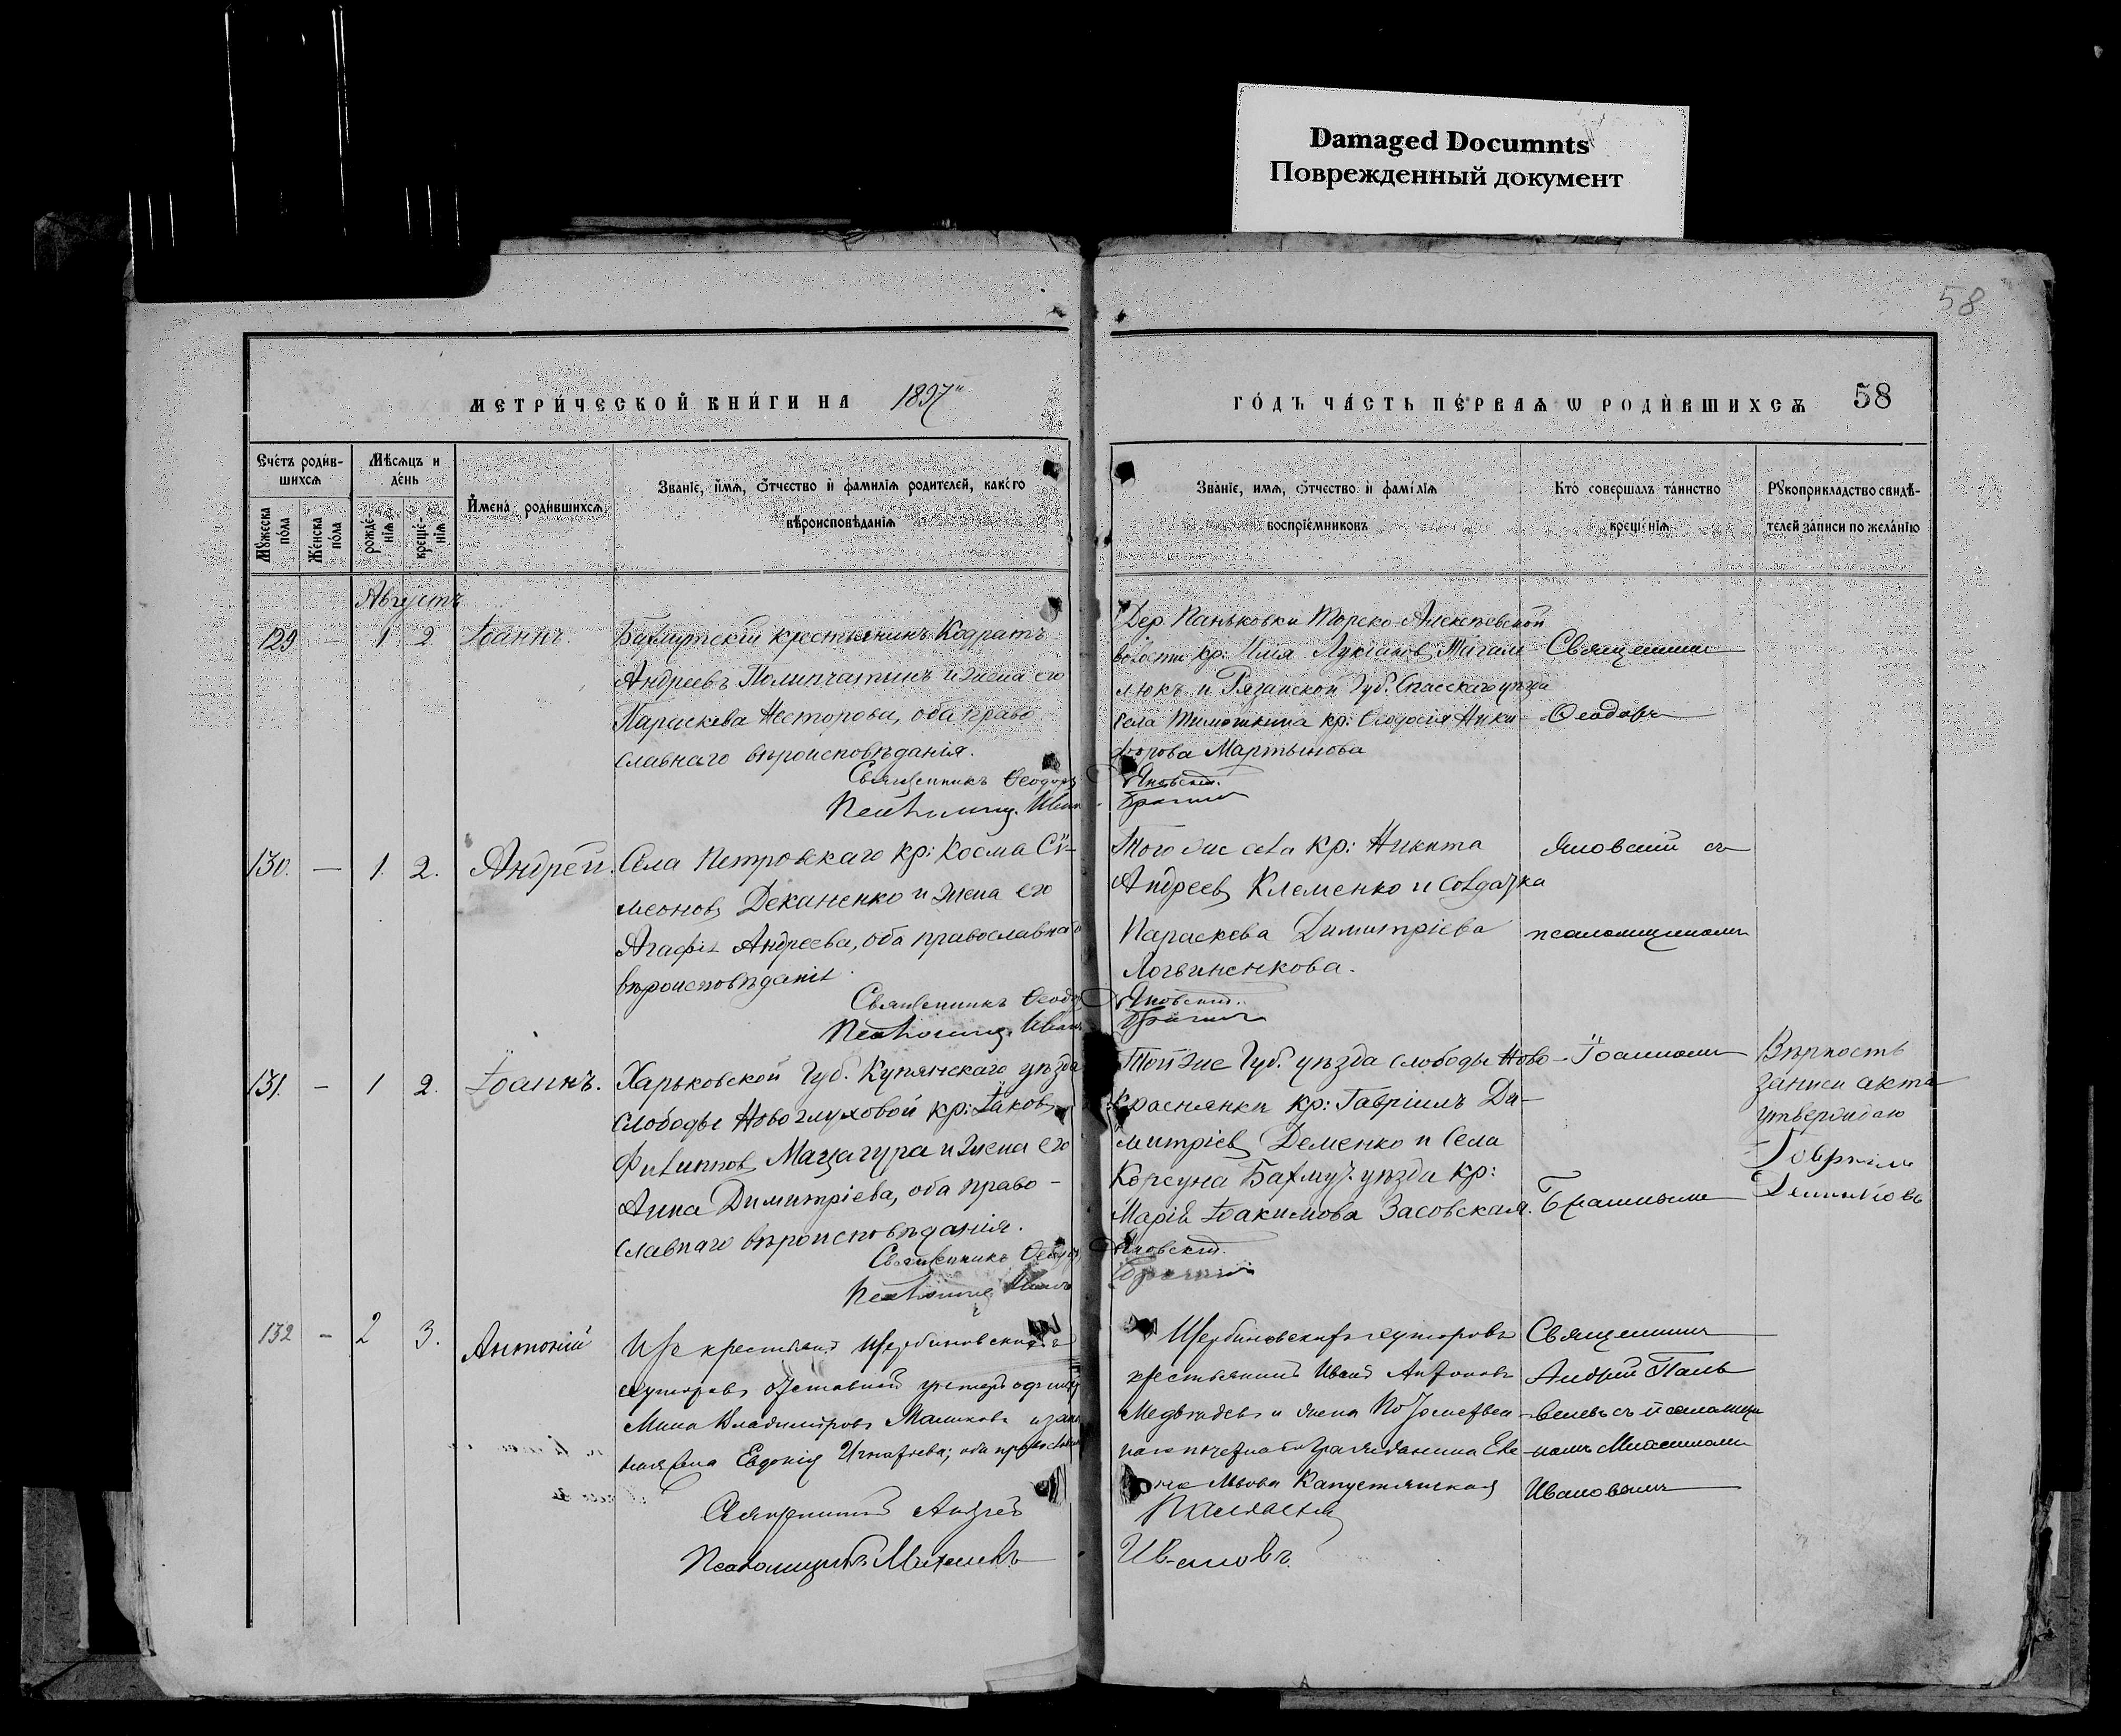 Damaged Documnts
Поврежденный документ
58
МЕТРИ́ЧЕСКОЙ КНИ́ГИ НА 1897
ГО́ДЪ ЧА́СТЬ ПЕ́РВАѦ Ѡ РОДИ́ВШИХСѦ 58
Сче́тъ роди́в-
шихсѧ
Мѣсѧцъ и
де́нь
Имена́ роди́вшихсѧ
Зва́нїе, и́мѧ, ѻ́тчество и҆ фами́лїѧ роди́телей, како́го
вѣроисповѣ́данїѧ
Мꙋ́жеска
по́ла
Же́нска
по́ла
рожде́-
нїѧ
креще́-
нїѧ
Зва́нїе, имѧ, ѻ́тчество и҆ фамі́лїѧ
воспрїе́мниковъ
Кто̀ соверша́лъ та́инство
креще́нїѧ
Рꙋкоприкла́дство свидѣ́-
телей за́писи по жела́нїю
Августъ
129 — 1 2 Іоаннъ
Бахмутскій крестьянинъ Кодратъ
Андреевъ и жена его
Параскева Несторова, оба право
славнаго вѣроисповѣданія.
Священникъ Ѳеодоръ
Псаломщ. Иванъ
Дер. Паньковки Торско-Алексѣевской
волости кр:
люкъ и Рязанской Губ. Спасскаго уѣзда
села Тимошкина кр: Ѳеодосія Ники-
форова Мартынова
Яновскій.
Священникъ
Ѳеодоръ
130. — 1. 2. Андрей.
Села Петровскаго кр: Косма Сѵ-
меоновъ Деканенко и жена его
Агафія Андреева, оба православнаго
вѣроисповѣданія.
Священникъ Ѳеодоръ
Псаломщ. Иванъ
Того же села кр: Никита
Андреевъ Клеменко и солдатка
Параскева Димитріева
Логвиненкова.
Яновскій.
Яновскій съ
псаломщикомъ
131. — 1 2. Іоаннъ.
Харьковской Губ. Купянскаго уѣзда
слободы Новоглуховой кр: Іаковъ
Филипповъ Мацагура и жена его
Анна Димитріева, оба право-
славнаго вѣроисповѣданія.
Священникъ Ѳеодоръ
Псаломщ Иванъ
Той же Губ. уѣзда слободы Ново-
краснянки кр: Гавріилъ Ди-
митріевъ Деменко и Села
Корсуна Бахмут. уѣзда кр:
Марія Іоакимова Засовская.
Яновскій.
Іоанномъ
Вѣрность
записи акта
утверждаю
132 — 2 3. Антоній
Изъ крестьянъ Щербиновскихъ
хуторовъ отставной
Мина Владиміровъ Маликовъ и
жена Евдокія Игнатьева; оба православн
Священникъ Андрей
Псаломщикъ Михаилъ
Щербиновскихъ хуторовъ
крестьянинъ Иванъ Антоновъ
Медвѣдевъ и жена Потомствен
наго почетнаго гражданина Еле
на Львова Капустянская
Ивановъ.
Священникъ
Андрей Пань
Ивановымъ